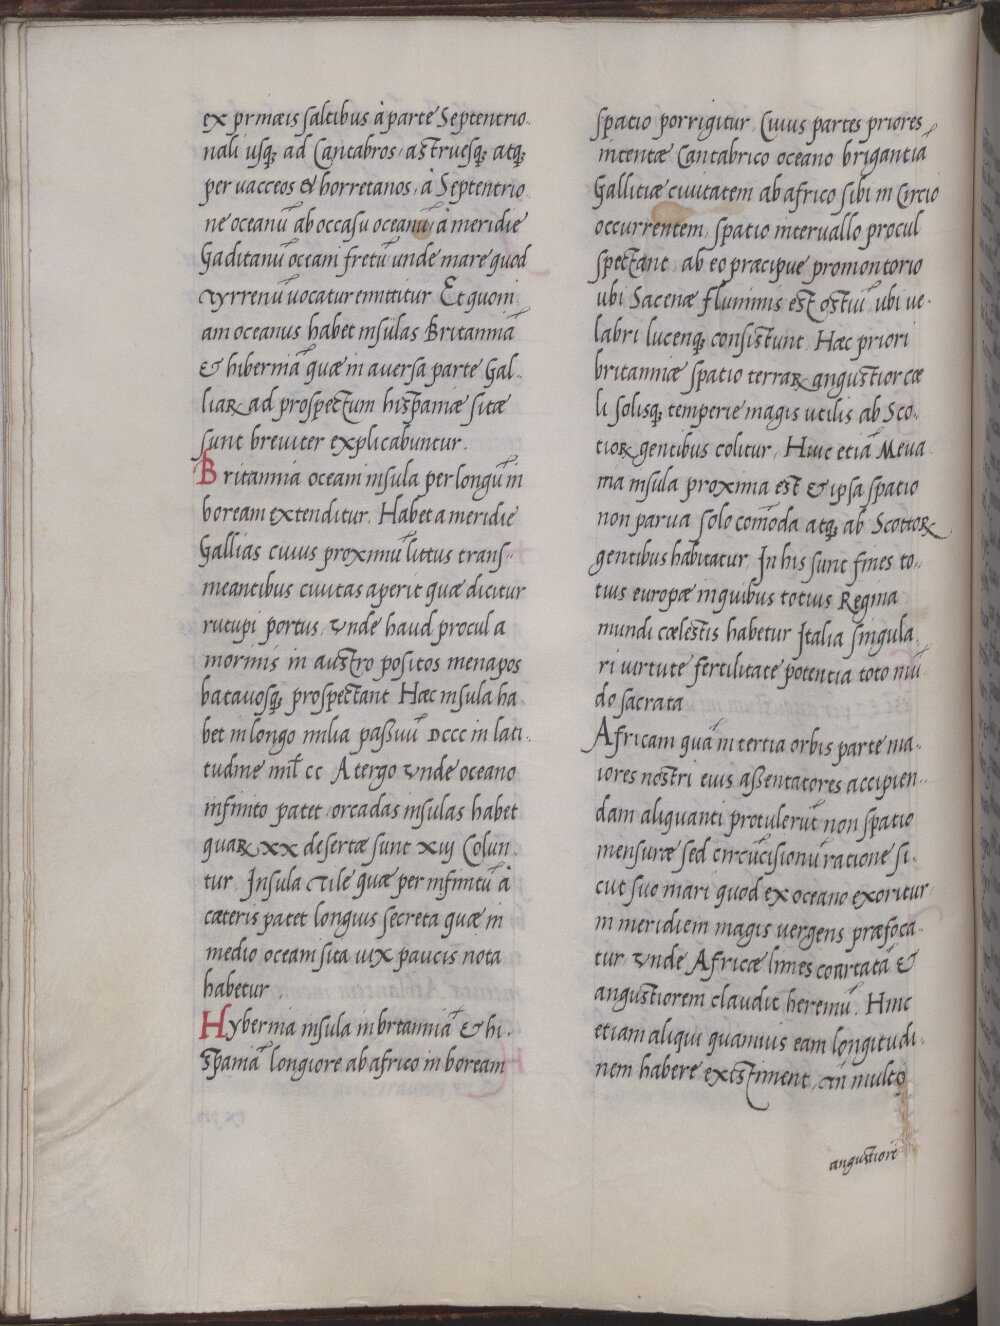 ex prinæis saltibus à parte Septentrio.
nali usq; ad Cantabros, astruesq; atq;
per vacceos & horretanos, à Septentrio
ne oceanū ab occasu oceanū, à meridie
Gaditanū oceani fretū unde mare quod
Tyrrenū vocatur enititur Et quoni
am oceanus habet insulas Britanniā
& hiberniā quæ in aversa parte Gal.
liaꝝ ad prospectum hispaniæ sitæ
sunt breviter explicabuntur.
Britannia oceani insula per longū in
boream extenditur. Habet a meridie
Gallias cuius proximū littus trans-
meantibus civitas aperit quæ dicitur
rutupi portus, unde haud procul a
mormis in austro positos menapos
batavosq; prospectant Hæc insula ha.
bet in longo milia passuū DCCC in lati.
tudine mił cc A tergo unde oceano
infinito patet, orcadas insulas habet
quaꝝ xx desertæ sunt xiij Colun.
tur. Insula Tile quæ per infinitū à
cæteris patet longius secreta quæ in
medio oceani sita vix paucis nota
habetur
Hybernia insula in brtanniā & hi.
spaniā longiore ab africo in boream
spatio porrigitur, Cuius partes priores
intentæ Cantabrico oceano brigantiā
Gallitiæ civitatem ab africo sibi in Circio
occurrentem, spatio intervallo procul
spectant ab eo præcipue promontorio
ubi Sacenæ fluminis est ostiū ubi ve.
labri lucenq; consistunt. Hæc priori
britanniæ spatio terraꝝ angustior cœ
li solisq; temperie magis utilis ab Sco-
tioꝝ gentibus colitur, Huic etiā Meva
nia insula proxima est & ipsa spatio
non parva solo comōda atq; ab Scottoꝝ
gentibus habitatur, In his sunt fines to-
tius europæ in quibus totius Regina
mundi cœlestis habetur Italia singula.
ri virtute fertilitate potentia toto mū
do sacrata
Africam quā in tertia orbis parte ma-
iores nostri eius assentatores accipien-
dam aliquanti protulerūt non spatio
mensuræ sed circūcisionū ratione si-
cut suo mari quod ex oceano exoritur
in meridiem magis vergens præfoca-
tur, unde Africæ limes coartatā &
angustiorem claudit heremū. Hinc
etiam aliqui quamius eam longitudi.
nem habere existiment, tn̄ multo
angustiorē